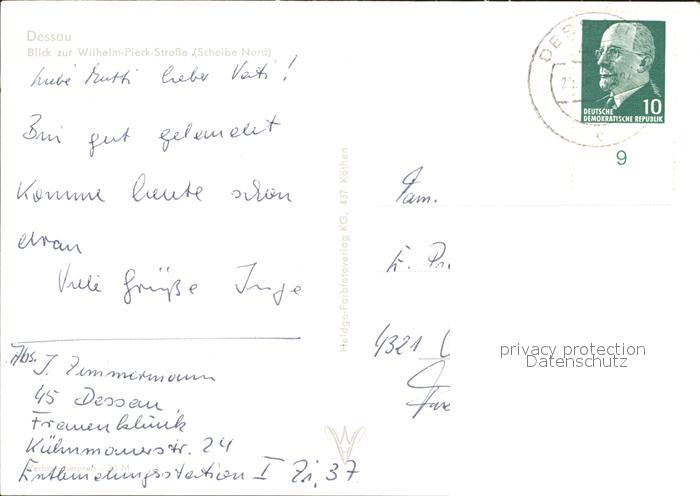 Dessau
Blick zur Wilhelm-Pieck-Straße (Scheibe Nord)
Liebe Mutti lieber Vati!
Bin gut gelandet
Komme heute schon
dran
Viele Grüße Inge
Abs. I. Zimmermann
45 Dessau
Frauenklinik
Kühnauerstr. 24
Entbindungsstation I Zi. 37
Heldge-Farbfotoverlag KG, 437 Köthen
DEUTSCHE
DEMOKRATISCHE REPUBLIK
10
9
Fam.
4321
privacy protection
Datenschutz